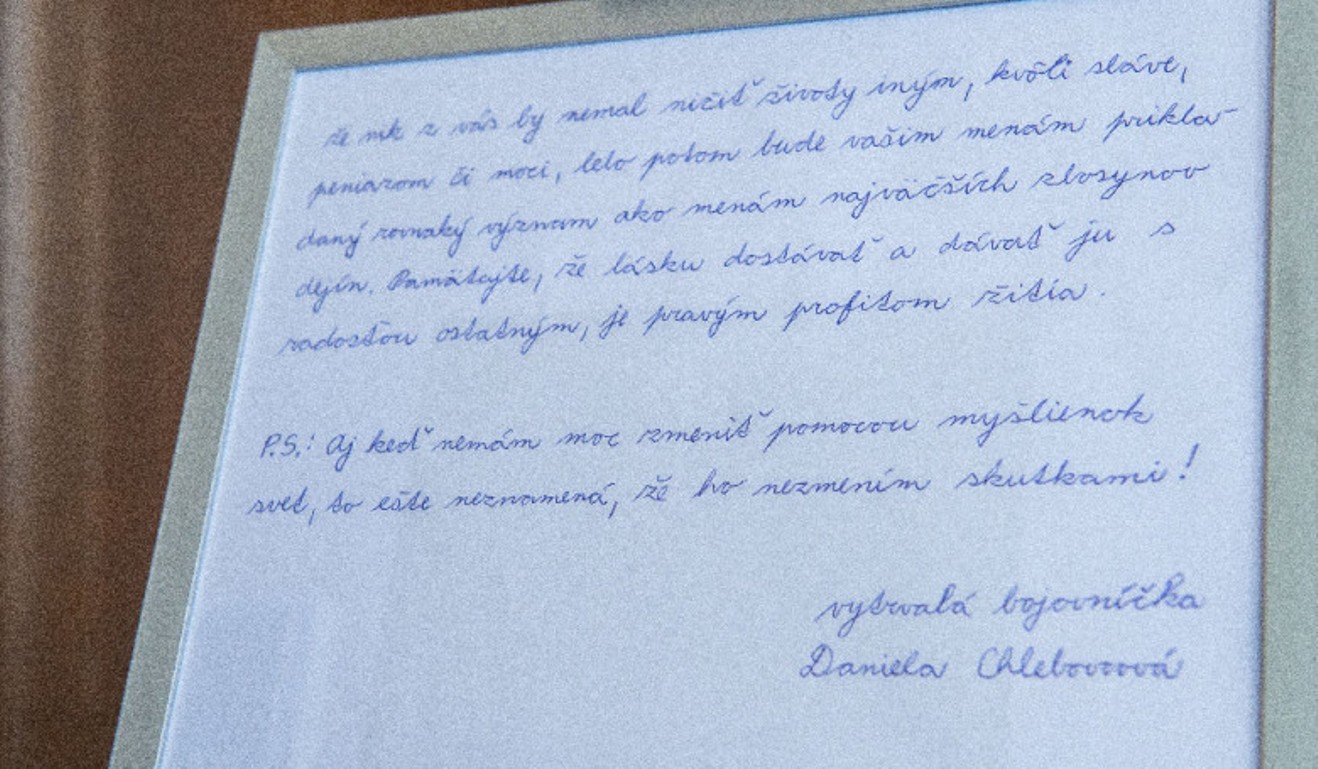 že nik z vás by nemal ničiť životy iným, kvôli sláve,
peniazom či moci, lebo potom bude vašim menám prikla-
daný rovnaký význam ako menám najväčších zlosynov
dejín. Pamätajte, že lásku dostávať a dávať ju s
radosťou ostatným, je pravým profitom žitia.
P.S.: Aj keď nemám moc zmeniť pomocou myšlienok
svet, to ešte neznamená, že ho nezmením skutkami!
vytrvalá bojovníčka
Daniela Chlebovcová